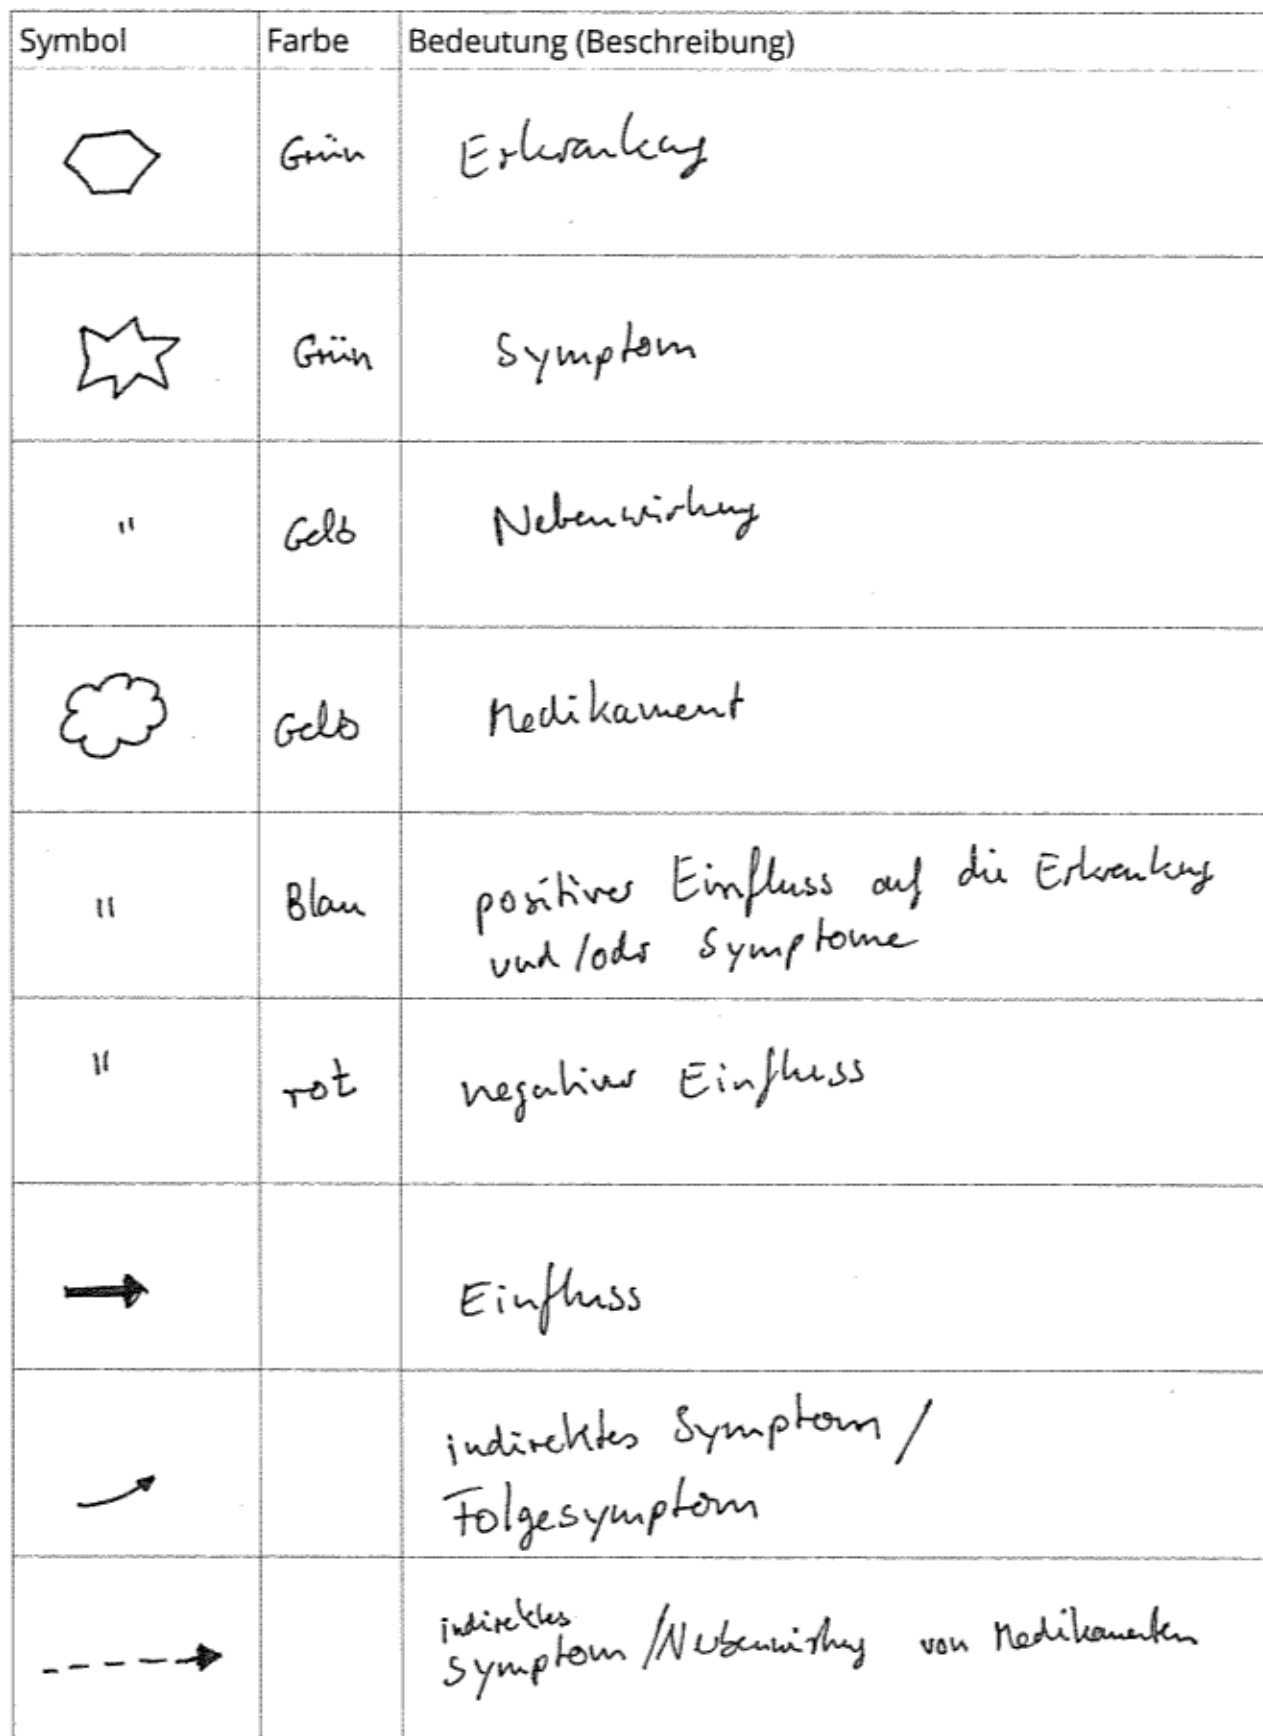 Symbol Farbe Bedeutung (Beschreibung)
Grün Erkrankung
Grün Symptom
" Gelb Nebenwirkung
Gelb Medikament
" Blau positiver Einfluss auf die Erkrankung
und/oder Symptome
" rot negativer Einfluss
Einfluss
indirektes Symptom /
Folgesymptom
indirektes
Symptom /Nebenwirkung von Medikamenten